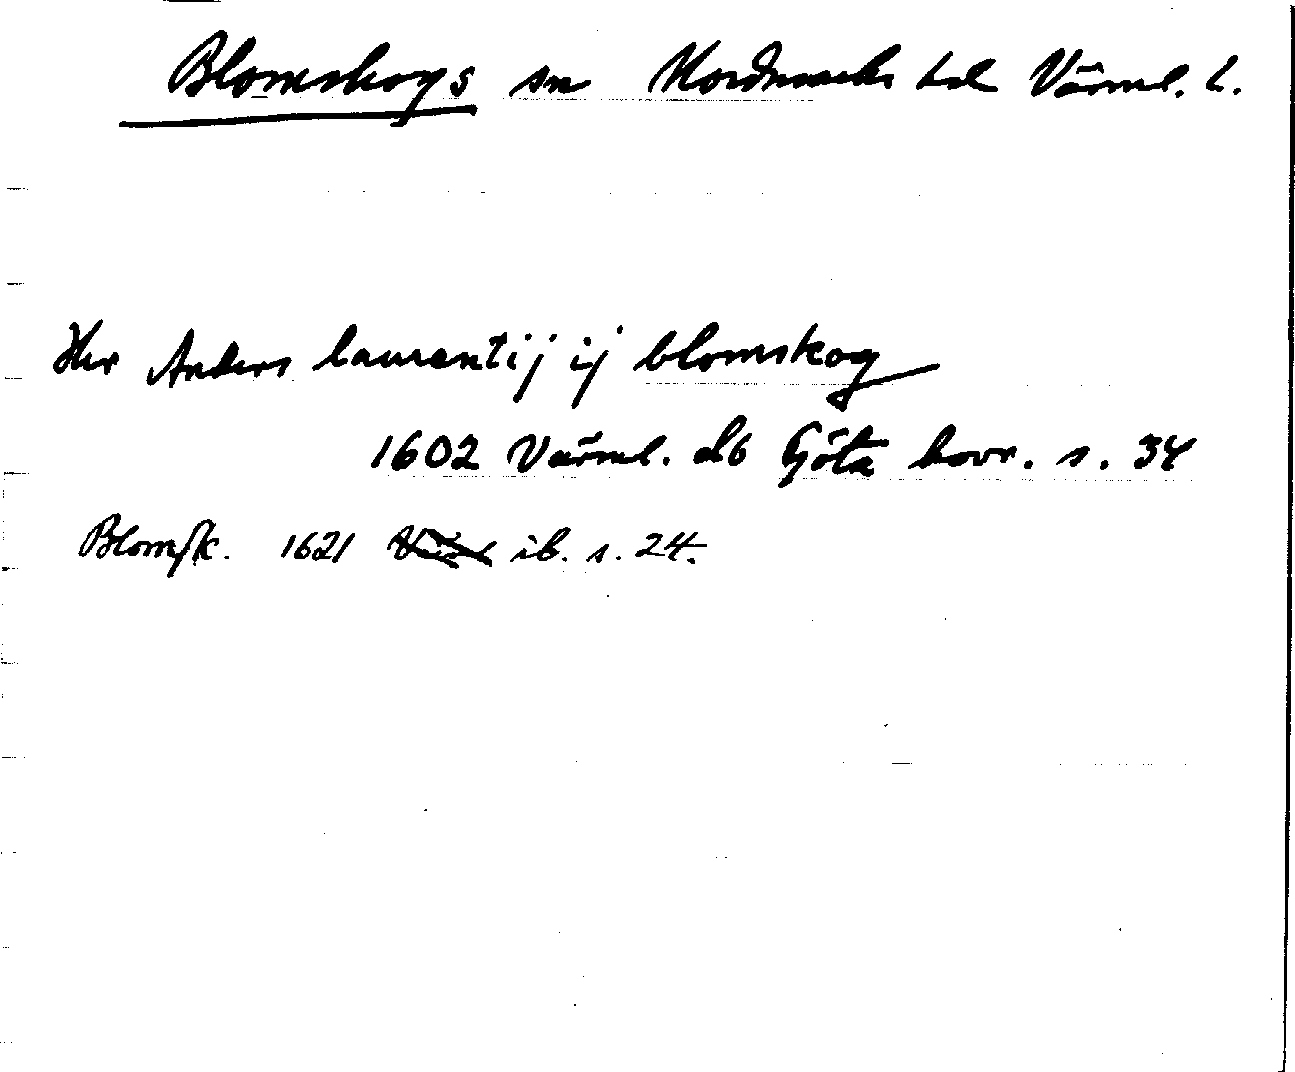 Blomskogs sn Nordmarks hd Värml. l.
Her Anders laurentij ij blomskog
1602 Värml. db Göta hovr. s. 34
Blomsk. 1621 ib. s. 24.